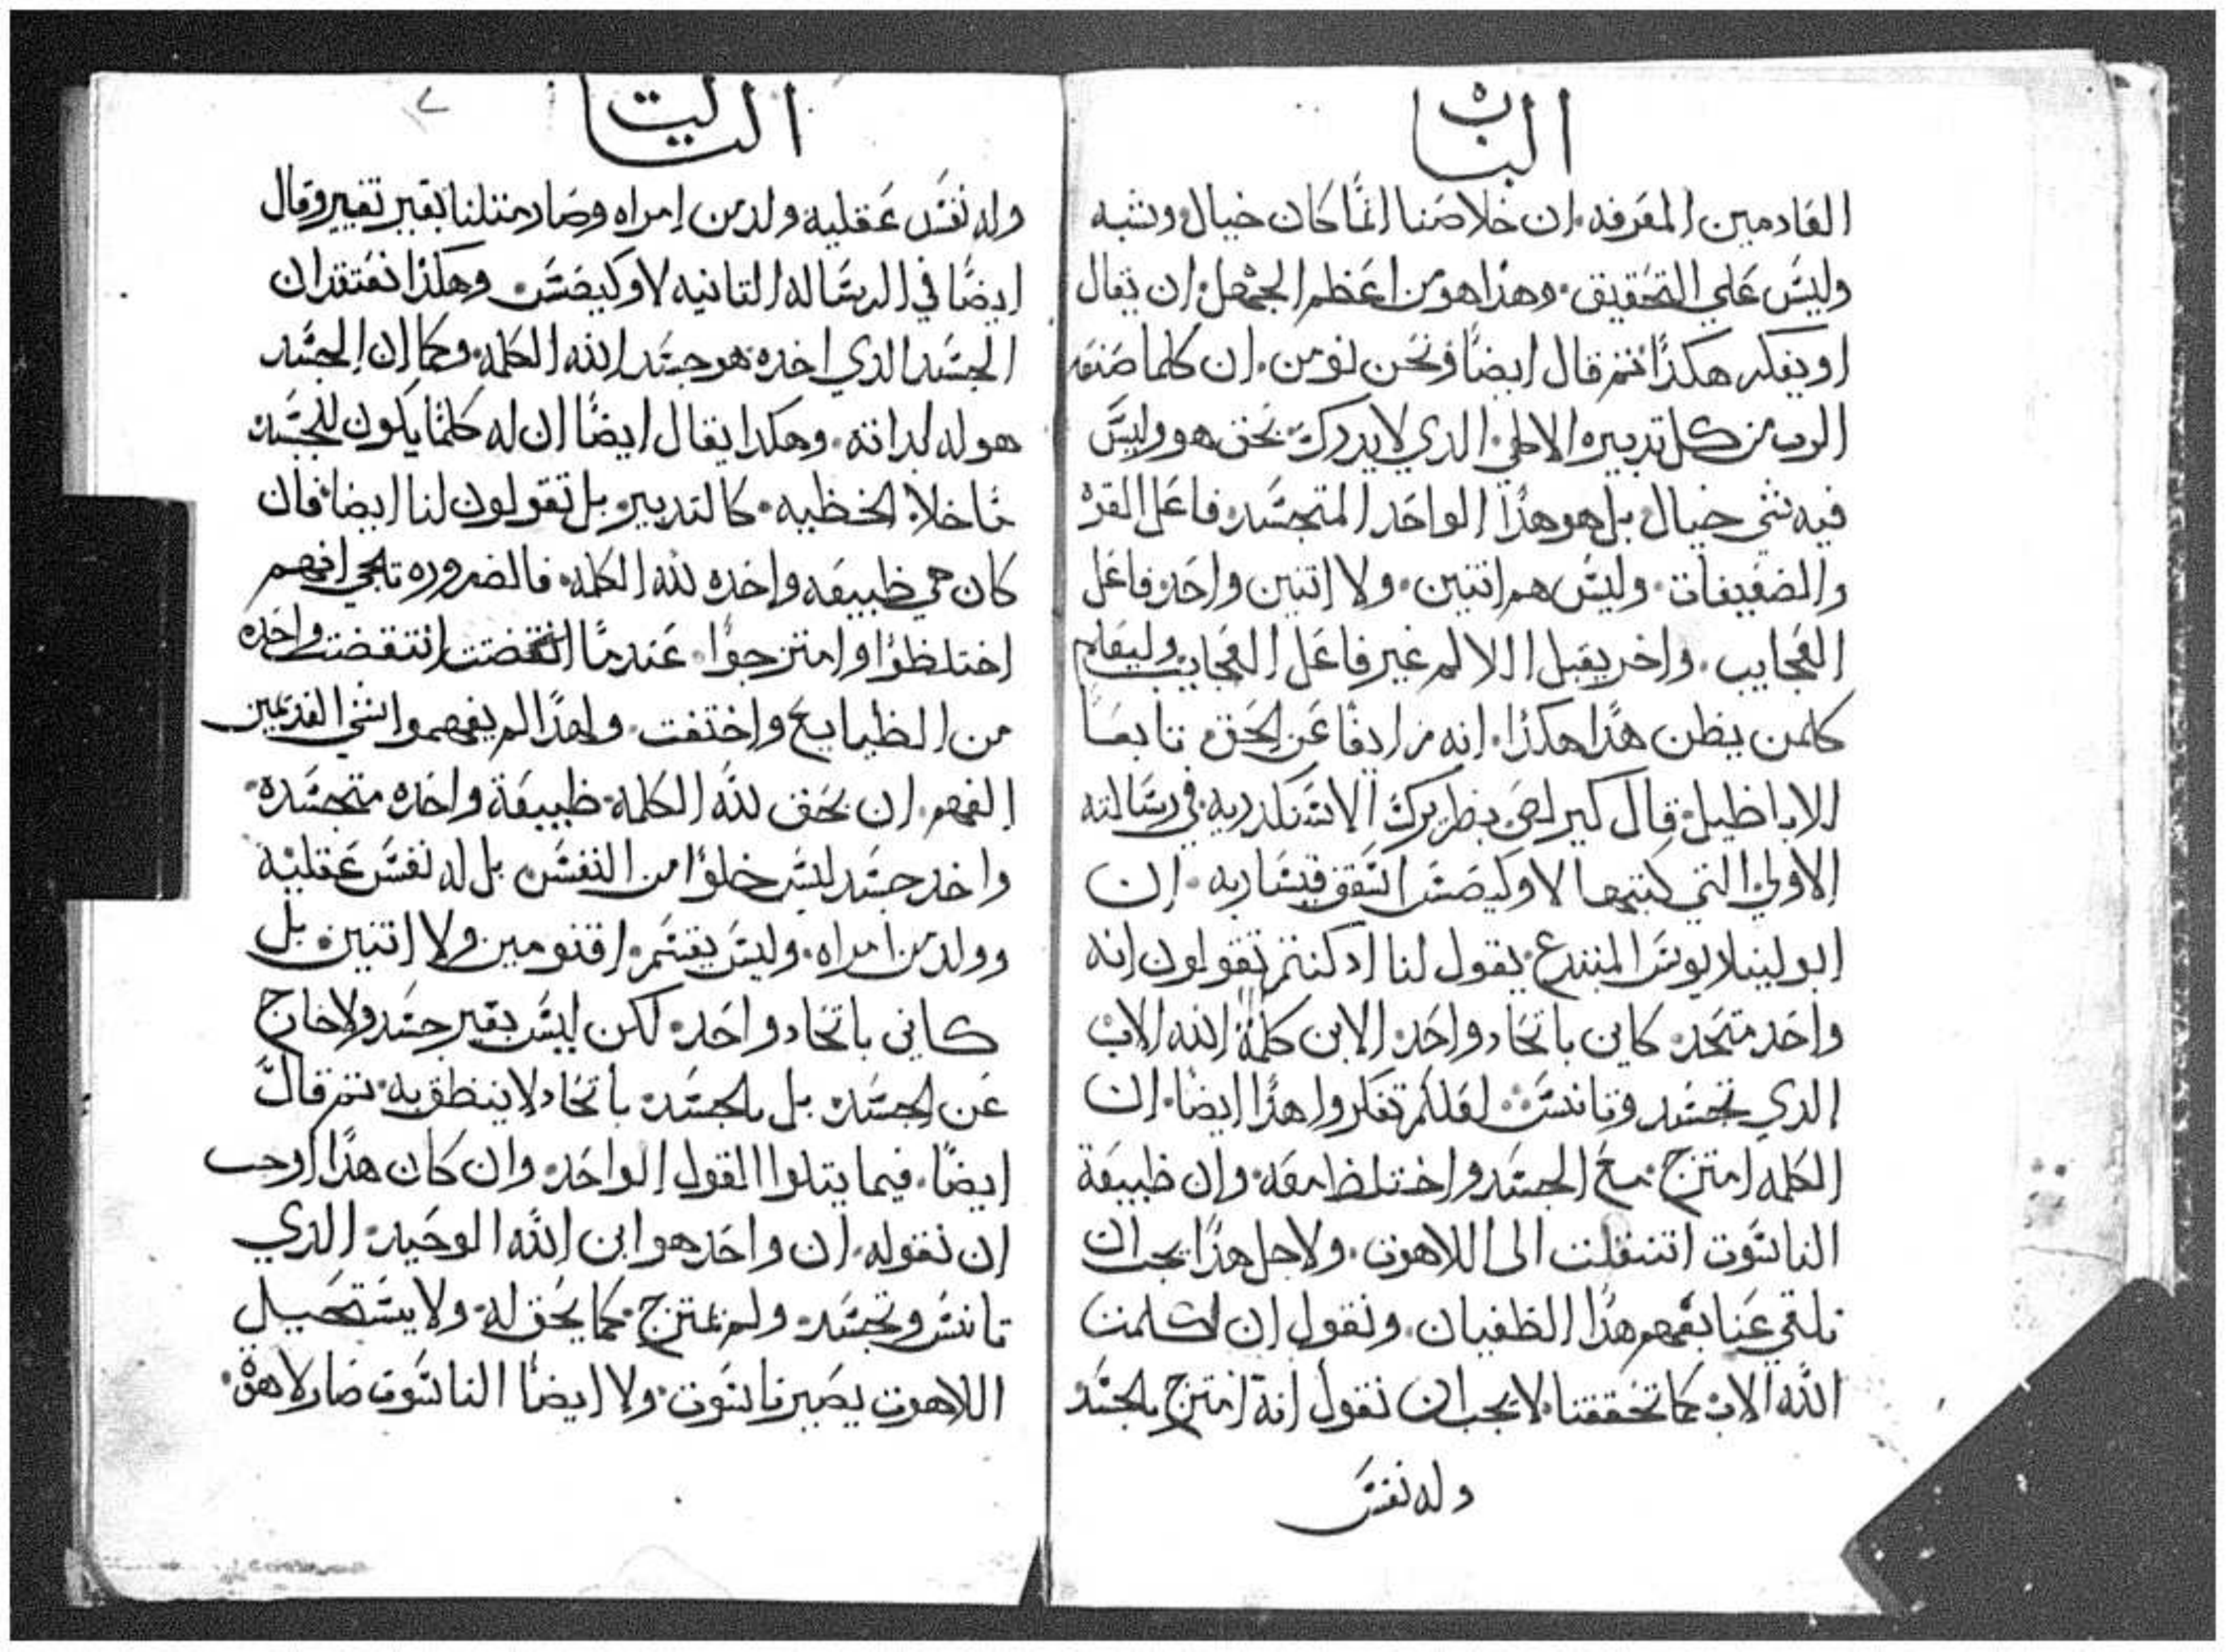 الباب
العادمين المعرفه. ان خلاصنا انما كان خيال وشبه
وليس علي التحقيق. وهذا هو من اعظم الجهل ان يقال
او يفكر هكذا ثم قال ايضا ونحن نومن. ان كلما صنعه
الرب من كل تدبيره الالهي الدي لا يدرك. بحق هو وليس
فيه شي خيال بل هو هذا الواحد المتجسد فاعل القوه
والضعيفات. وليس هم اتنين. ولا اتنين واحد فاعل
العجايب. واخر يقبل الالم غير فاعل العجايب وليعلم
كلمن يظن هذا هكذا. انه مزايفا عن الحق تابعا
للاباطيل. قال كيرلص بطريرك الاسكندريه في رسالته
الاولي التي كتبها لاوكيصس اسقف قيساريه. ان
ابولينلاريوس المبتدع. يقول لنا اد كنتم تقولون انه
واحد متحد كاين باتحاد واحد الابن كلمة الله الاب
الدي تجسد وتانس. لعلكم تفكروا هذا ايضا. ان
الكلمه امتزج مع الجسد واختلط معه وان طبيعة
الناسوت اتنقلت الى اللاهوت. ولاجل هذا يجب ان
نلقي عنا بفهم هذا الطغيان. ونقول ان كلمت
الله الاب كما تحققنا. لا يجب ان نقول انه امتزج بالجسد
وله نفس
التالت
٧
وله نفس عقليه ولد من امراه وصار متلنا بغير تغيير وقال
ايضا في الرساله التانيه لاوكيصس وهكذا نعتقد ان
الجسد الدي اخده هو جسد الله الكلمه. وكما ان الجسد
هو له لداته. وهكدا يقال ايضا ان له كلما يكون للجسد
ما خلا الخطيه. كالتدبير بل تقولون لنا ايضا فان
كان هي طبيعه واحده لله الكلمه. فالضروره تلجي انهم
اختلطوا وامتزجوا. عندما انتقضت واحده
من الطبايع واختفت. ولهذا لم يفهموا نشي العديمين
الفهم. ان بحق لله الكلمه طبيعة واحده متجسده.
واخد جسد ليس خلوا من النفس بل له نفس عقليه
وولد من امراه. وليس يقسم. اقنومين ولا اتنين. بل
كاين باتحاد واحد. لكن ليس بغير جسد ولا خارج
عن الجسد. بل بالجسد باتحاد لا ينطق به. تم قال
ايضا. فيما يتلوا القول الواحد. وان كان هذا اوجب
ان نقوله. ان واحد هو ابن الله الوحيد الدي
تانس وتجسد. ولم يمتزج. كما يحق له. ولا يستحيل
اللاهوت يصير ناسوت. ولا ايضا الناسوت صار لاهوت.